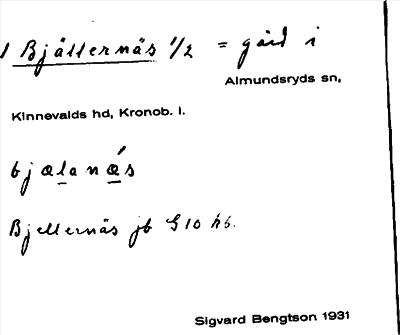 1 Bjällernäs 1/2 = gård i
Almundsryds sn,
Kinnevalds hd, Kronob. l.
bjælanǽs
Bjellernäs jb G 10 hb.
Sigvard Bengtson 1931